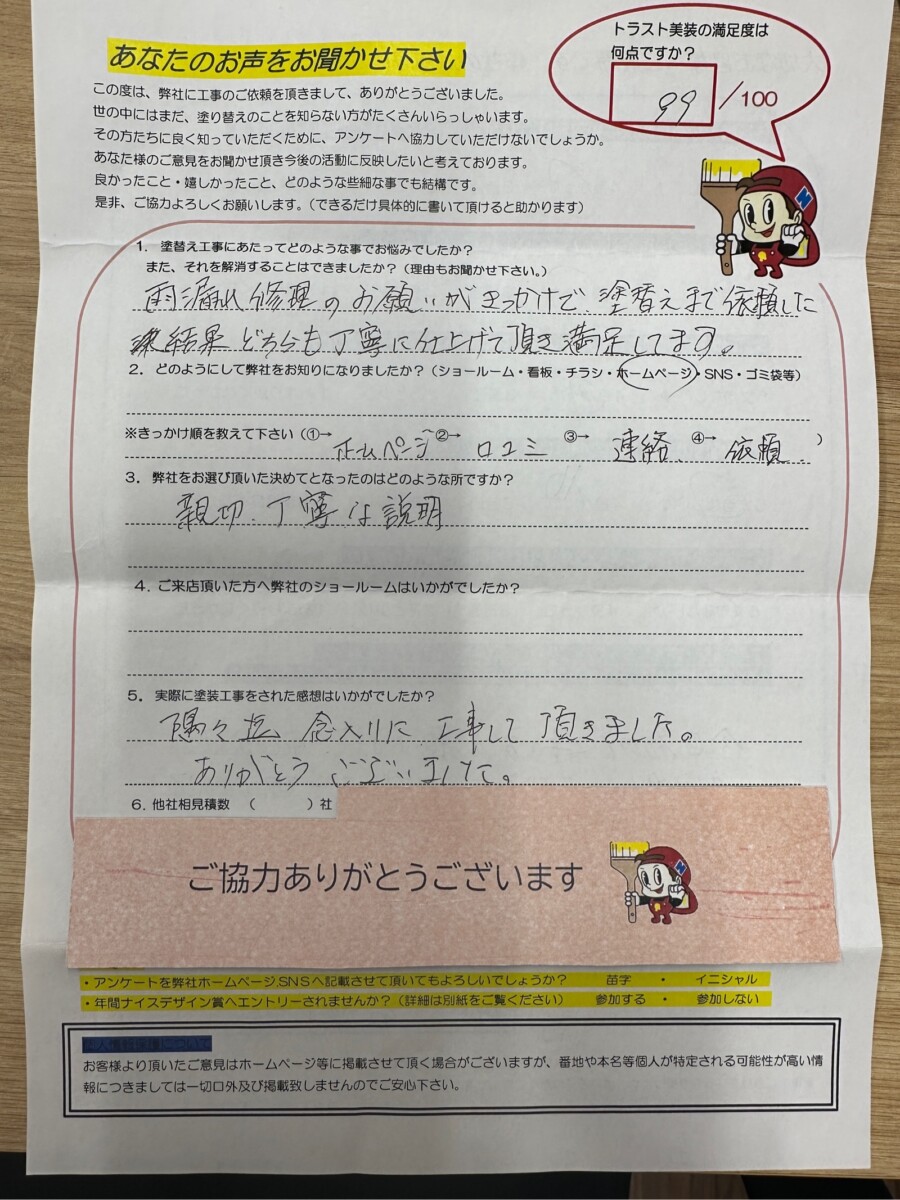 あなたのお声をお聞かせ下さい
トラスト美装の満足度は
何点ですか?
99/100
この度は、弊社に工事のご依頼を頂きまして、ありがとうございました。
世の中にはまだ、塗り替えのことを知らない方がたくさんいらっしゃいます。
その方たちに良く知っていただくために、アンケートへ協力していただけないでしょうか。
あなた様のご意見をお聞かせ頂き今後の活動に反映したいと考えております。
良かったこと・嬉しかったこと、どのような些細な事でも結構です。
是非、ご協力よろしくお願いします。(できるだけ具体的に書いて頂けると助かります)
1. 塗替え工事にあたってどのような事でお悩みでしたか?
また、それを解消することはできましたか?(理由もお聞かせ下さい。)
雨漏れ修理のお願いがきっかけで、塗替えまで依頼した
結果どちらも丁寧に仕上げて頂き満足してます。
2. どのようにして弊社をお知りになりましたか?(ショールーム・看板・チラシ・ホームページ・SNS・ゴミ袋等)
※きっかけ順を教えて下さい(①→ホームページ ②→口コミ ③→連絡 ④→依頼 )
3. 弊社をお選び頂いた決めてとなったのはどのような所ですか?
親切、丁寧な説明
4. ご来店頂いた方へ弊社のショールームはいかがでしたか?
5. 実際に塗装工事をされた感想はいかがでしたか?
隅々迄 念入りに 工事して頂きました。
ありがとうございました。
6. 他社相見積数 ( )社
ご協力ありがとうございます
・アンケートを弊社ホームページ,SNSへ記載させて頂いてもよろしいでしょうか? 苗字 ・ イニシャル
・年間ナイスデザイン賞へエントリーされませんか?(詳細は別紙をご覧ください) 参加する ・ 参加しない
個人情報保護について
お客様より頂いたご意見はホームページ等に掲載させて頂く場合がございますが、番地や本名等個人が特定される可能性が高い情
報につきましては一切口外及び掲載致しませんのでご安心下さい。